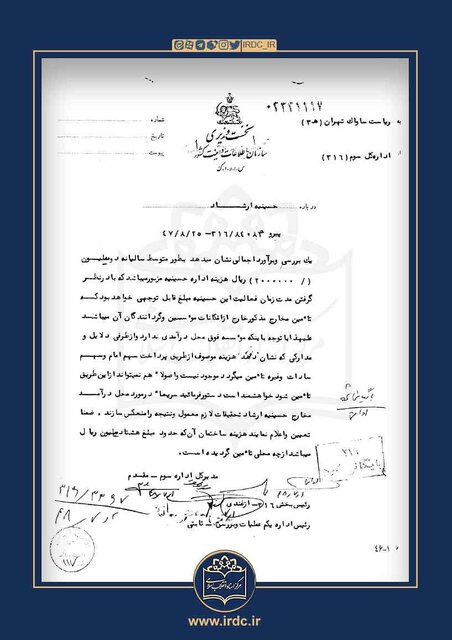 IRDC_IR
نخست وزیری
سازمان اطلاعات و امنیت کشور
س.ا.و.ا.ک
شماره
تاریخ
پیوست
به ریاست ساواک تهران (۳هـ)
از اداره کل سوم (۳۱۶)
درباره حسینیه ارشاد
پیرو ۳۱۶/۸۴۰۸۳-۴۷/۸/۲۵
یک بررسی وبرآورداجمالی نشان میدهد بطور متوسط سالیانه دومیلیون
(۲۰۰۰۰۰۰/) ریال هزینه اداره حسینیه مزبورمیباشد که بادرنظر
گرفتن مدت زمان فعالیت این حسینیه مبلغ قابل توجهی خواهدبود که
تا٬مین مخارج مذکورخارج ازامکانات موسسین وگردانندگان آن میباشد
علیهذا با توجه باینکه موسسه فوق محل درآمدی ندارد وازطرفی دلایل و
مدارکی که نشان دهد هزینه موصوف ازطریق پرداخت سهم امام وسهم
سادات وغیره تا٬مین میگردد موجود نیست واصولا هم نمیتواند ازاین طریق
تا٬مین شود خواهشمند است دستورفرمائید سریعا درمورد محل درآمد
مخارج حسینیه ارشاد تحقیقات لازم معمول ونتیجه رامنعکس سازند. ضمنا
تعیین واعلام نمایند هزینه ساختمان آن که حدود مبلغ هشتاد ملیون ریال
میباشد ازچه محلی تا٬مین گردیده است.
مدیرکل اداره سوم - مقدم
رئیس بخش ۳۱۶ - ازغندی
رئیس اداره یکم عملیات وبررسی - ثابتی
بایگانی شود
۴۶-۱۰۶
مرکز اسناد انقلاب اسلامی
www.irdc.ir